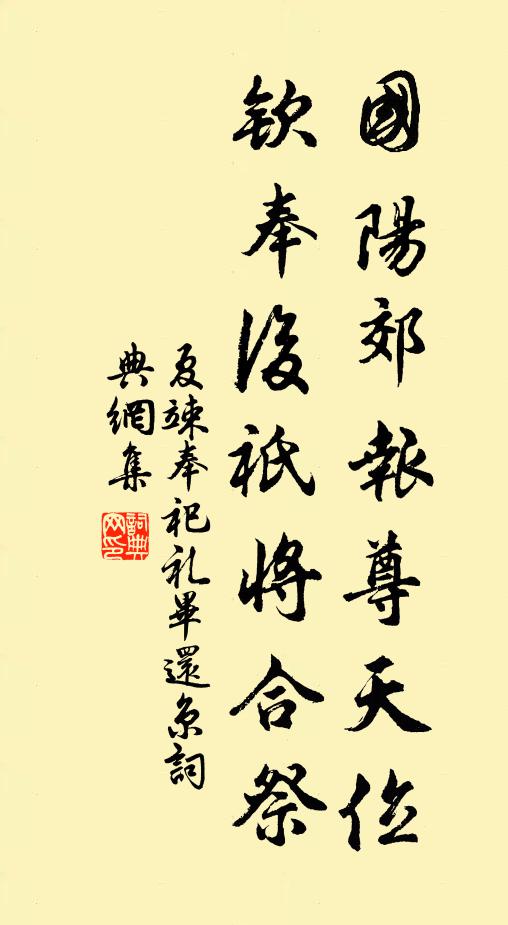 國陽郊報尊天位
欽奉後祇將合祭
夏竦奉祀礼畢還京詞
典網集
詞典
网印